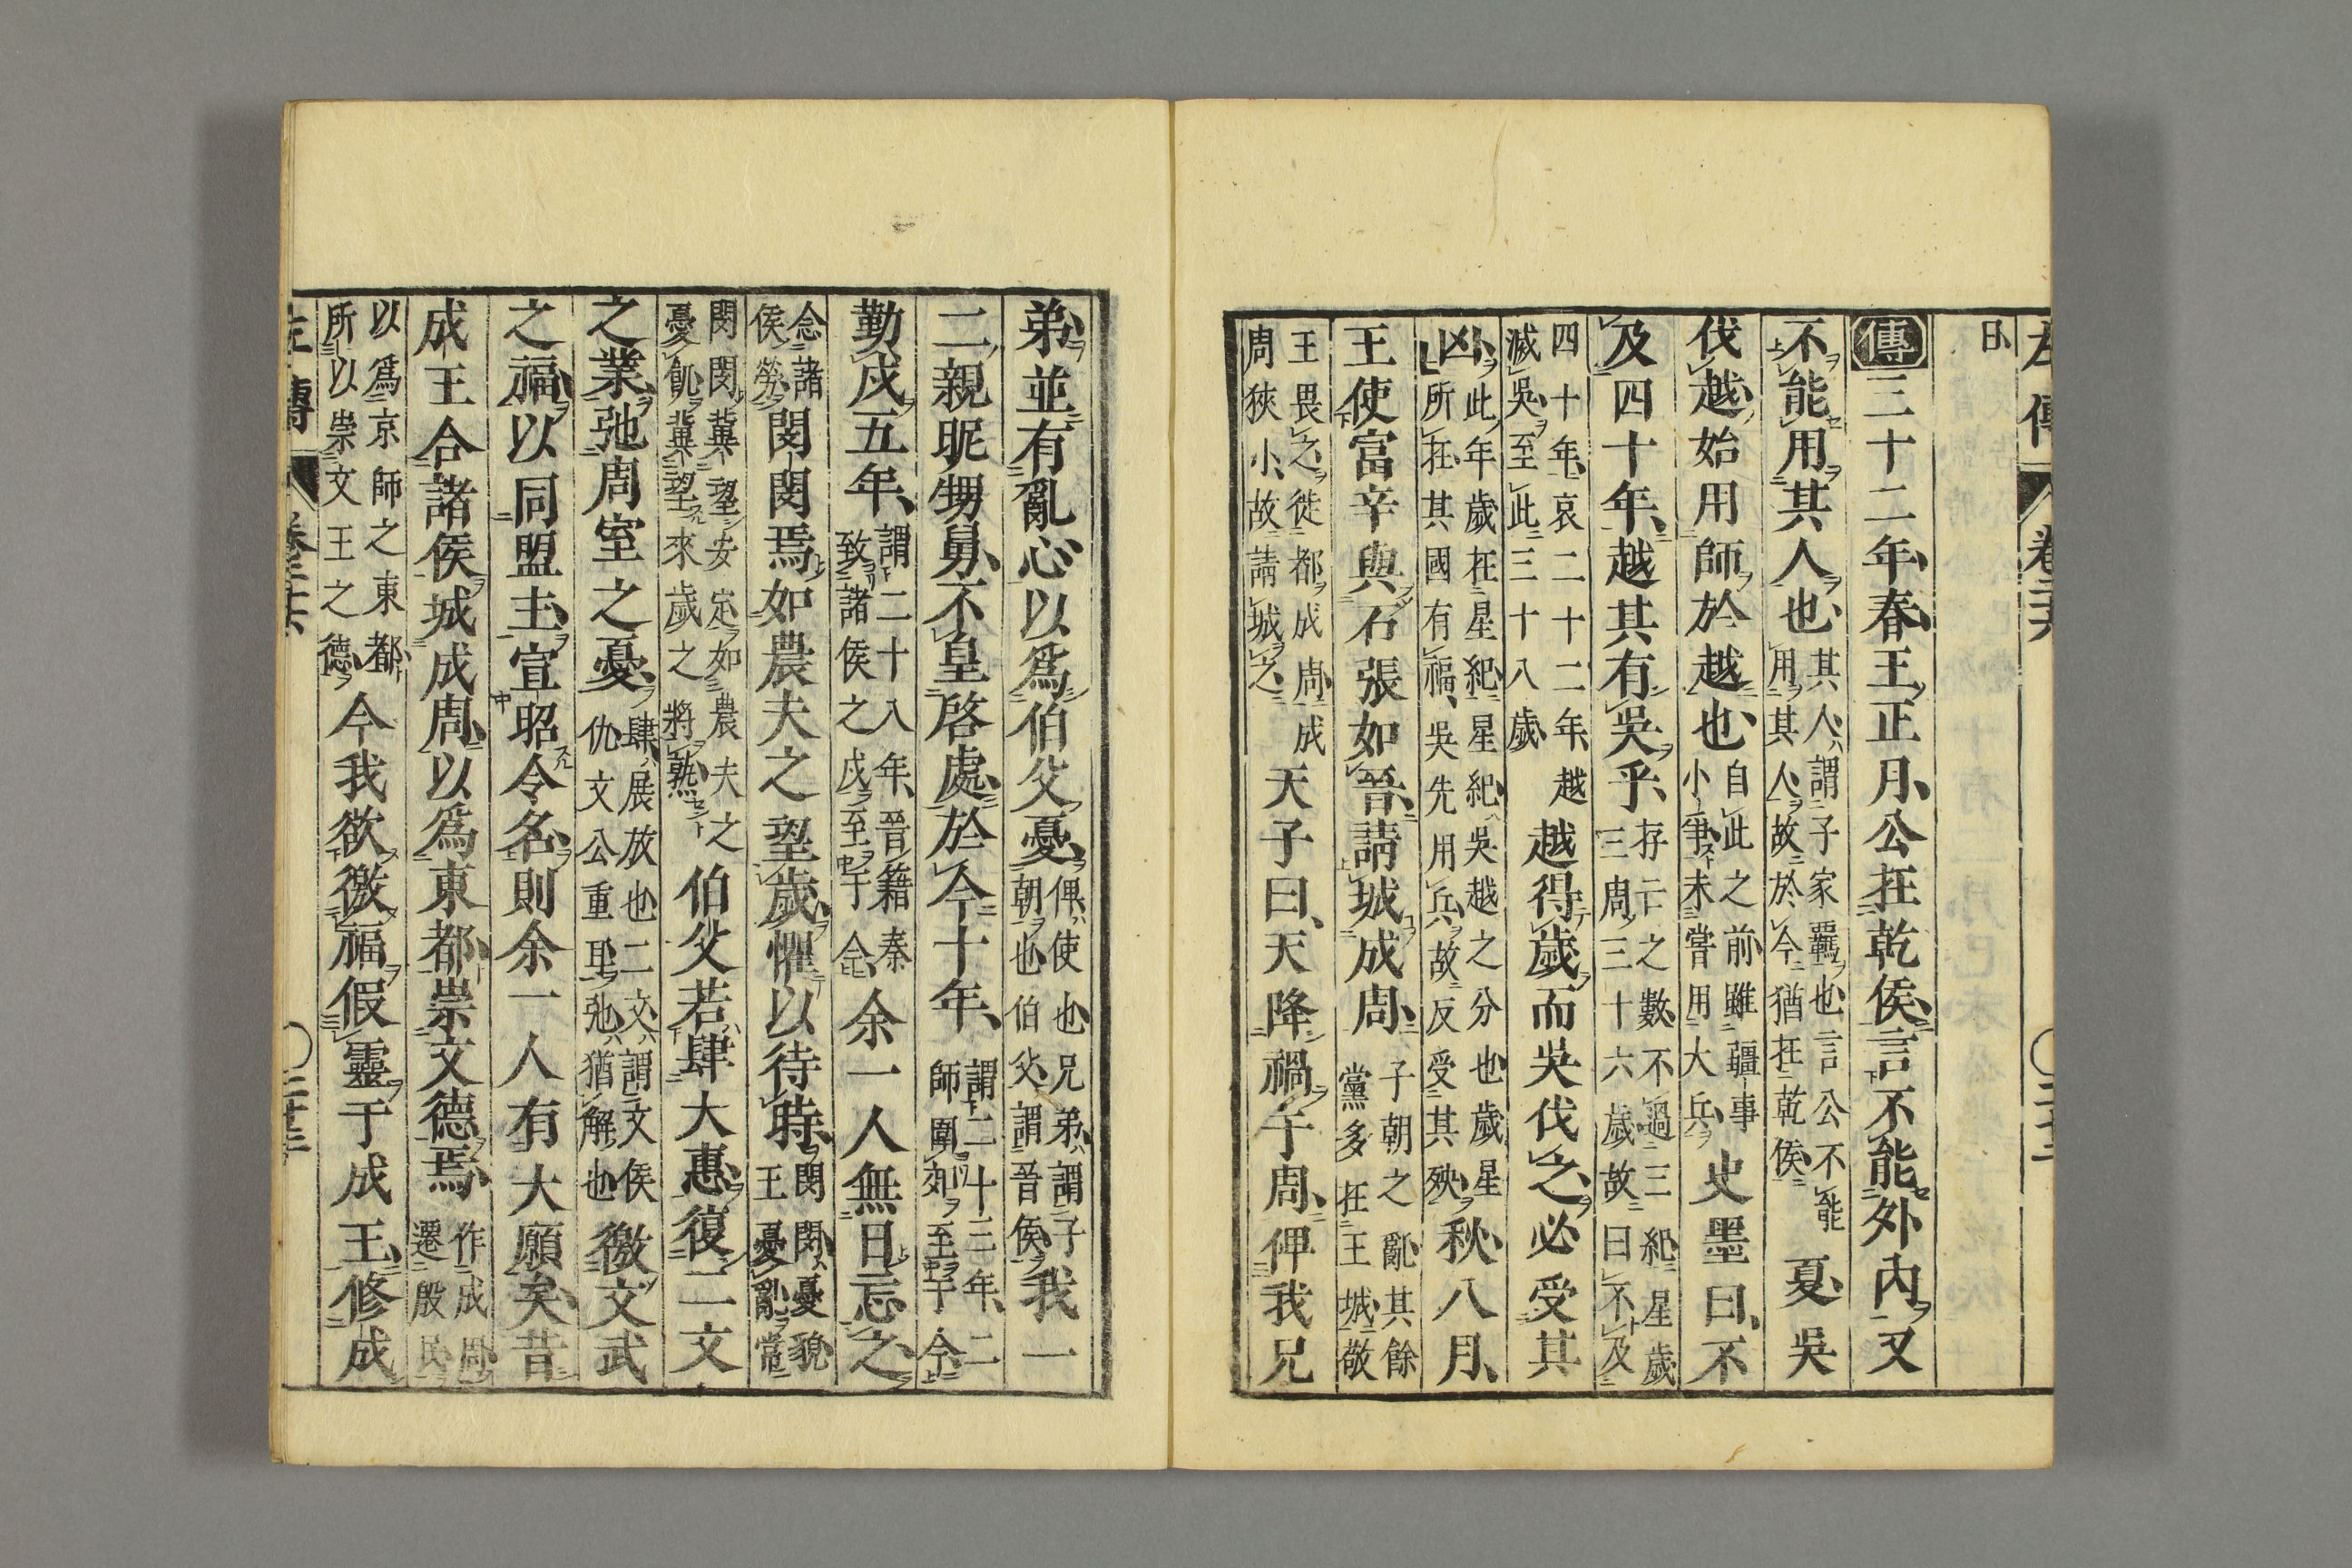 左傳 卷二十六
傳三十二年春王正月公在乾侯言不能外內又
不能用其人也其人謂子家羈也言公不能用其人故於今猶在乾侯夏吳
伐越始用師於越也自此之前雖疆事小爭未嘗用大兵史墨曰不
及四十年越其有吳乎存亡之數不過三紀星歲三周三十六歲故曰不及
四十年哀二十二年越滅吳至此三十八歲越得歲而吳伐之必受其
凶此年歲在星紀星紀吳越之分也歲星所在其國有福吳先用兵故反受其殃秋八月
王使富辛與石張如晉請城成周子朝之亂其餘黨多在王城敬
王畏之徙都成周成周狹小故請城之天子曰天降禍于周俾我兄
弟並有亂心以爲伯父憂俾使也兄弟謂子朝也伯父謂晉侯我一
二親昵甥舅不皇啓處於今十年謂二十三年二師圍郊至于今
勤戍五年謂二十八年晉籍秦致諸侯之戍至于今余一人無日忘之
念諸侯勞閔閔焉如農夫之望歲懼以待時閔閔憂貌王憂亂常
閔閔冀望安定如農夫之憂飢冀望來歲之將熟伯父若肆大惠復二文
之業弛周室之憂肆展放也二文謂文侯仇文公重耳弛猶解也徼文武
之福以同盟主宣昭令名則余一人有大願矣昔
成王合諸侯城成周以爲東都崇文德焉作成周遷殷民
以爲京師之東都所以崇文王之德今我欲徼福假靈于成王修成
左傳 卷二十六 二十三